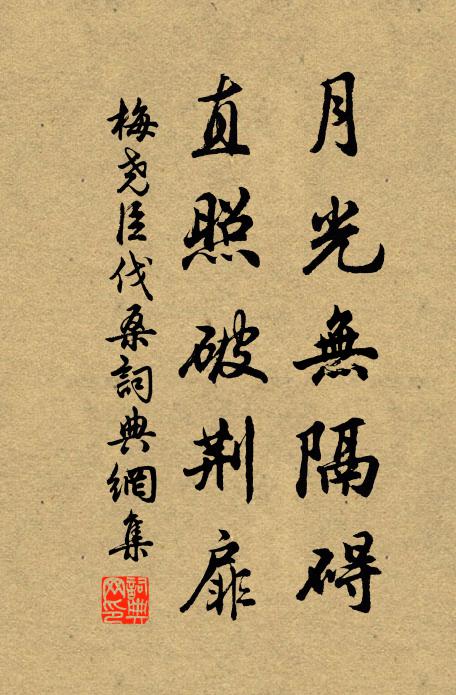 月光無隔碍
直照破荆扉
梅尧臣伐桑詞典網集
詞典網印